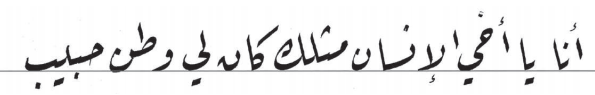 أنا يا أخي الإنسان مثلك كان لي وطن حبيب